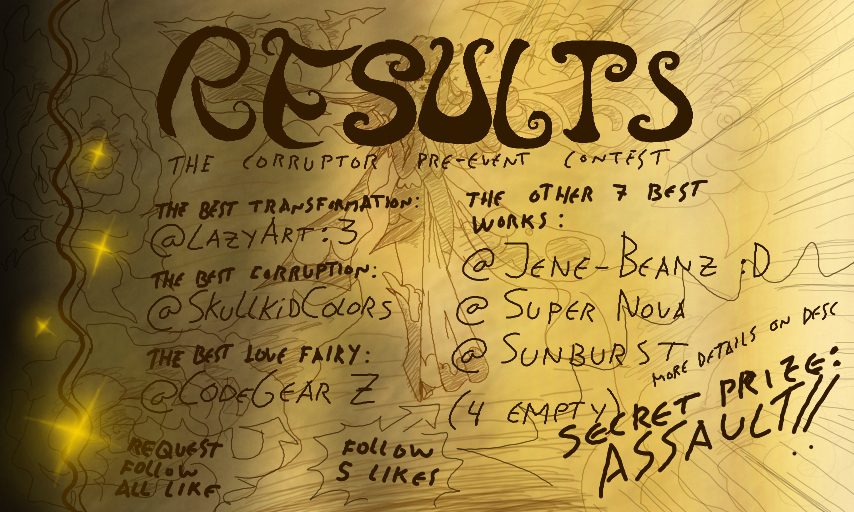 RESULTS
THE CORRUPTOR PRE-EVENT CONTEST
THE BEST TRANSFORMATION:
@LAZYART:3
THE BEST CORRUPTION:
@SKULLKIDCOLORS
THE BEST LOVE FAIRY:
@CODEGEAR Z
REQUEST
FOLLOW
ALL LIKE
FOLLOW
5 LIKES
THE OTHER 7 BEST
WORKS:
@JENE-BEANZ :D
@SUPER NOVA
@SUNBURST
(4 EMPTY)
MORE DETAILS ON DESC
SECRET PRIZE:
ASSAULT!!!